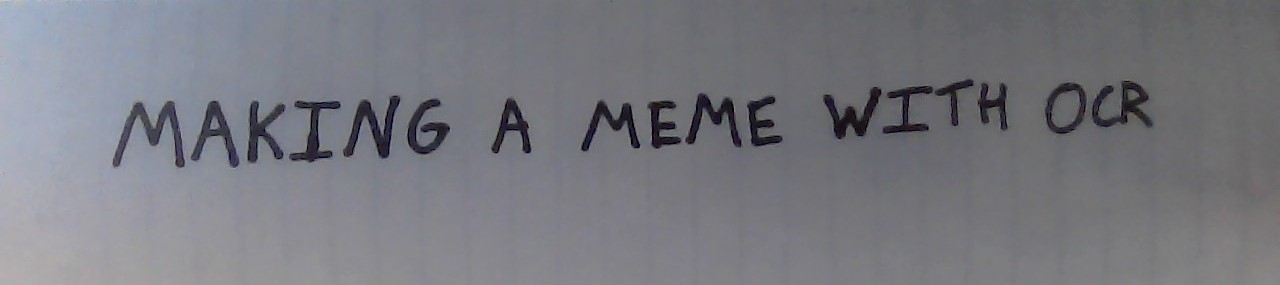 MAKING A MEME WITH OCR